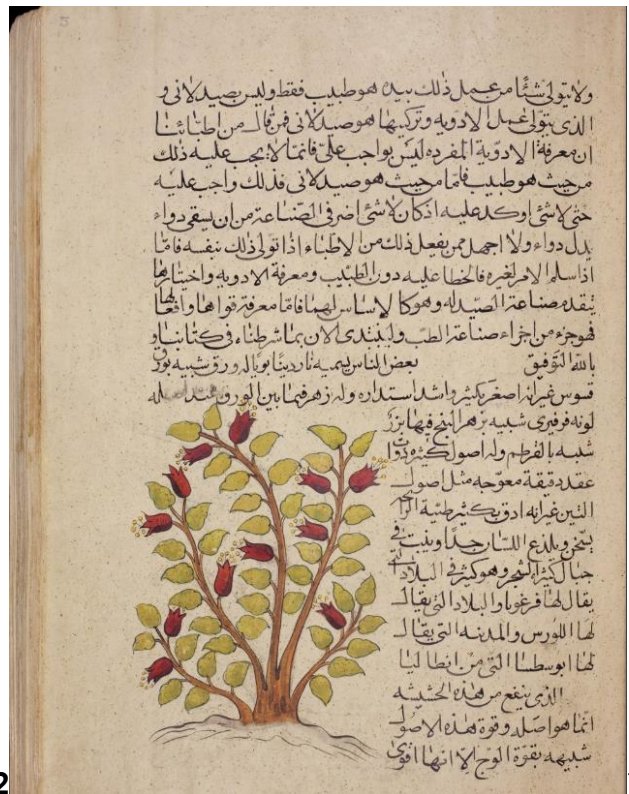 5
ولا يتولى شئا من عمل ذلك بيده هو طبيب فقط وليس بصيدلانى و
الذى يتولى عمل الادويه وتركيبها هو صيدلانى فمن قال من اطبائنا
ان معرفة الادوية المفرده ليس بواجب على فانما لا يجب عليه ذلك
من حيث هو طبيب فاما من حيث هو صيدلانى فذلك واجب عليه
حتى لا شئ اوكد عليه اذ كان لا شئ اضر فى الصناعة من ان يسقى دواء
بدل دواء ولا اجهل ممن يفعل ذلك من الاطباء اذا تولى ذلك بنفسه فاما
اذا سلم الامر لغيره فالخطا عليه دون الطبيب ومعرفة الادويه واختيارها
يتقدم صناعة الصيدله وهو كالاساس لها فاما معرفة قواها وافعالها
فهو جزء من اجزاء صناعة الطب ولنبتدى الان بما شرطناه فى كتابنا و
بالله التوفيق بعض الناس يسميه ناردينا بويا له ورق شبيه بورق
قسوس غير انه اصغر بكثير واشد استداره وله زهر فيما بين الورق عند
لونه فرفيرى شبيه بزهر البنج فيها بزر
شبيه بالقرطم وله اصول كثيره ذوات
عقد دقيقة معوجه مثل اصول
التين غير انه ادق بكثير طيبة الرائحه
يسخن ويلذع اللسان جدا وينبت فى
جبال كثيرة الشجر وهو كثير فى البلاد التى
يقال لها فرغويا والبلاد التى يقال
لها اللورس والمدينه التى يقال
لها ابوسطسا التى من انطاليا
الذى ينفع من هذه الحشيشه
انما هو اصله وقوة هذه الاصول
شبيهه بقوة الوج الا انها اقوى
2